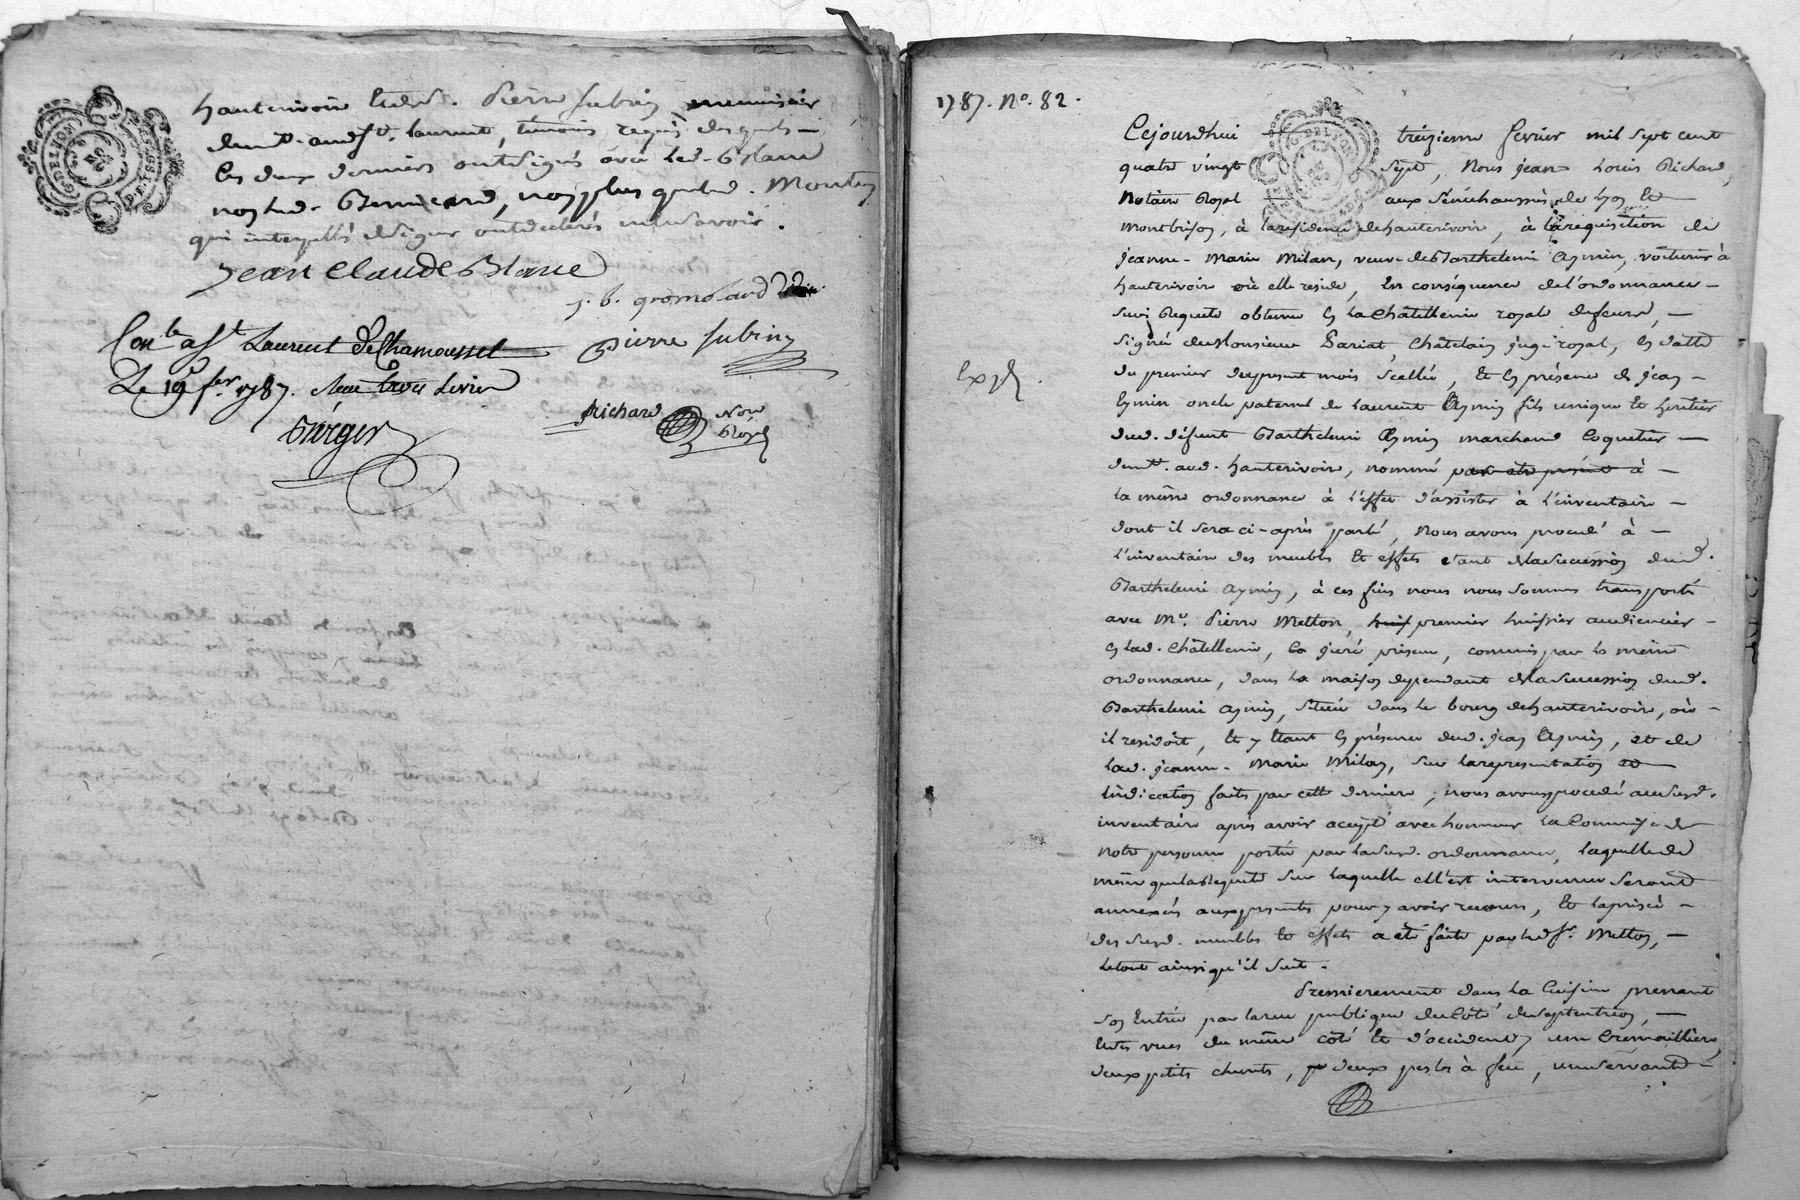 hauterivoir, Et de Sr. Pierre Subrin menuisier
demt. aud. St. Laurent, témoins requis, desquels
les deux derniers ont signés avec led. Blanc
non led. non plus que lad.
qui interpellés de signer ont déclarés ne le savoir.
Jean Claude Blanc
j. b. gromolard
Pierre Subrin
Conlé a St Laurent de Chamousset
Le 19 fer. 1787. Reçu
Richard Nore
Royal
Girger
1787. No. 82.
Expd.
Cejourdhui treizieme fevrier mil sept cent
quatre vingt sept, Nous jean Louis Richard,
Notaire Royal aux sénéchaussées de Lyon Et
Montbrison, à la residence de hauterivoir, à la requisition de
jeanne-Marie Milan, veuve de Barthelemi Aymin, voiturier à
hauterivoir où elle reside, En conséquence de l'ordonnance
sur Requete obtenue En la Châtellenie royale de feurs,
signée de Monsieur Pariat, Châtelain juge royal, En datte
du premier du present mois scellée, Et En présence de jean
Eymin oncle paternel de Laurent Aymin fils unique Et heritier
dud. défunt Barthelemi Aymin marchand Coquetier
demt. aud. hauterivoir, nommé par à
la même ordonnance à l'effet d'assister à l'inventaire
dont il sera ci-après parlé, Nous avons procédé à
l'inventaire des meubles Et effets étant de la succession dud.
Barthelemi Aymin, à ces fins nous nous sommes transportés
avec Me. Pierre Metton, premier huissier audiencier
En lad. Châtellenie, Et juré priseur, commis par la même
ordonnance, dans la maison dependant de la succession dud.
Barthelemi Aymin, située dans le bourg de hauterivoir, où
il residoit, Et y Etant En présence dud. jean Aymin, et de
lad. jeanne-Marie Milan, sur la representation et
Indication faite par cette derniere, nous avons procédé au susd.
inventaire après avoir accepté avec honneur la Commise de
notre personne portée par la susd. ordonnance, laquelle de
même que la Requete sur laquelle Ell'est intervenue seront
annexées aux presentes pour y avoir recours, Et la prisée
des susd. meubles Et effets a été faite par led. Sr. Metton,
le tout ainsi qu'il suit.
Premierement dans la Cuisine prenant
son Entrée par la rue publique du Côté du septentrion,
Et ses vues du même côté Et d'occident, une Cremailliere,
deux petits chenets, deux peles à feu, un servant